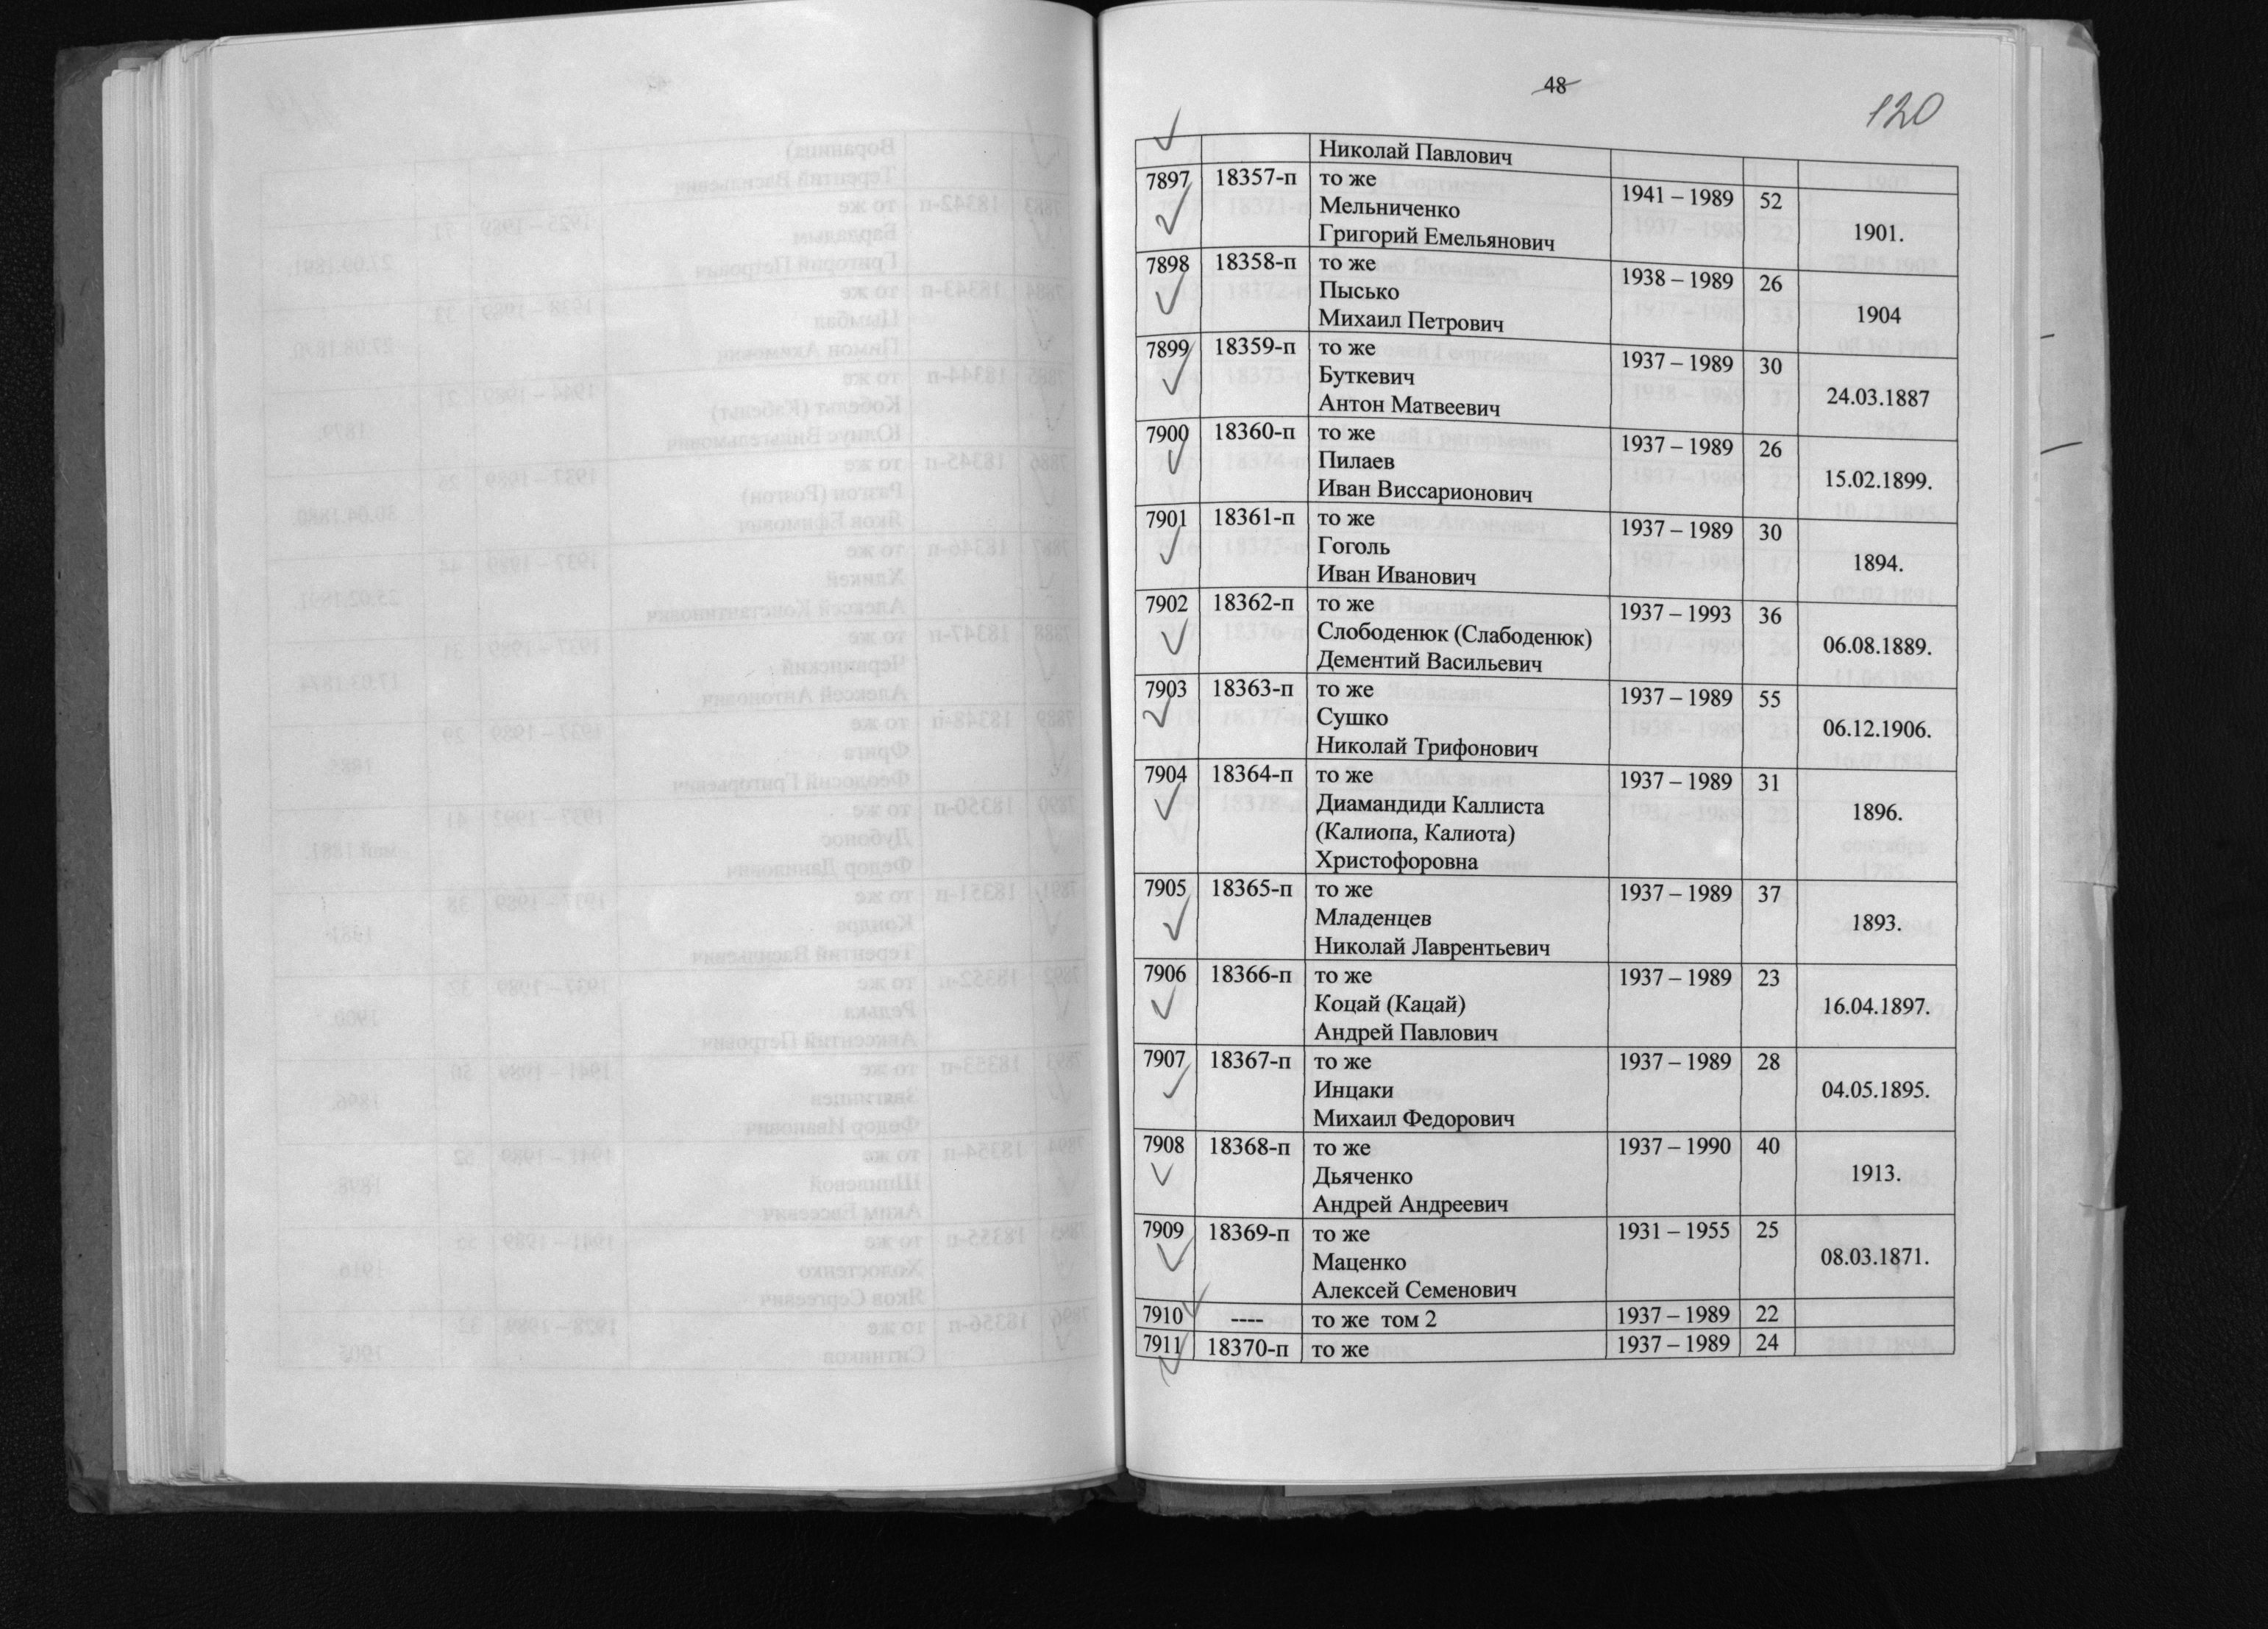 48
120
Николай Павлович
7897 18357-п то же 1941 – 1989 52
Мельниченко
Григорий Емельянович 1901.
7898 18358-п то же 1938 – 1989 26
Пысько
Михаил Петрович 1904
7899 18359-п то же 1937 – 1989 30
Буткевич
Антон Матвеевич 24.03.1887
7900 18360-п то же 1937 – 1989 26
Пилаев
Иван Виссарионович 15.02.1899.
7901 18361-п то же 1937 – 1989 30
Гоголь
Иван Иванович 1894.
7902 18362-п то же 1937 – 1993 36
Слободенюк (Слабоденюк)
Дементий Васильевич 06.08.1889.
7903 18363-п то же 1937 – 1989 55
Сушко
Николай Трифонович 06.12.1906.
7904 18364-п то же 1937 – 1989 31
Диамандиди Каллиста 1896.
(Калиопа, Калиота)
Христофоровна
7905 18365-п то же 1937 – 1989 37
Младенцев 1893.
Николай Лаврентьевич
7906 18366-п то же 1937 – 1989 23
Коцай (Кацай) 16.04.1897.
Андрей Павлович
7907 18367-п то же 1937 – 1989 28
Инцаки 04.05.1895.
Михаил Федорович
7908 18368-п то же 1937 – 1990 40
Дьяченко 1913.
Андрей Андреевич
7909 18369-п то же 1931 – 1955 25
Маценко 08.03.1871.
Алексей Семенович
7910 ---- то же том 2 1937 – 1989 22
7911 18370-п то же 1937 – 1989 24